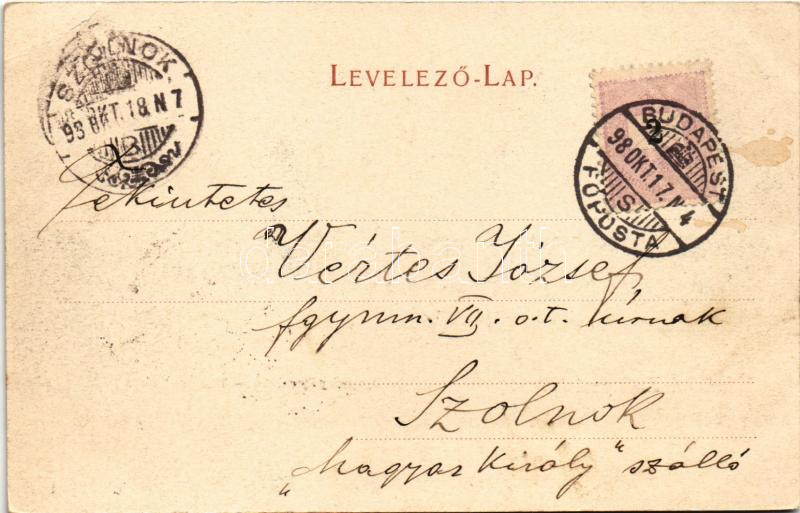 LEVELEZŐ-LAP.
SZOLNOK
98 OKT. 18. N 7
BUDAPEST
98 OKT. 17. N 4
S
FŐPOSTA
Tekintetes
Vértes József,
fgymn. VII. o. t. úrnak
Szolnok
„Magyar Király" szálló